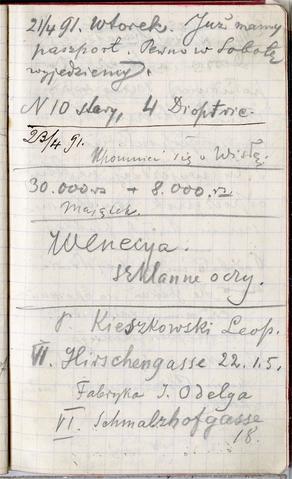 21/4 91. Wtorek. Już mamy
paszport. Pewno w Sobotę
wyjedziemy.
N 10 stary, 4 Dioptrie.
23/4 91.
Upomnieć się o Wisłę.
30.000 rz + 8.000. rz
Majątek.
Wenecya.
szklanne oczy.
P. Kieszkowski Leop.
VI. Hirschengasse 22. I. 5.
Fabryka J. Odelga
VI. Schmalzhofgasse
18.